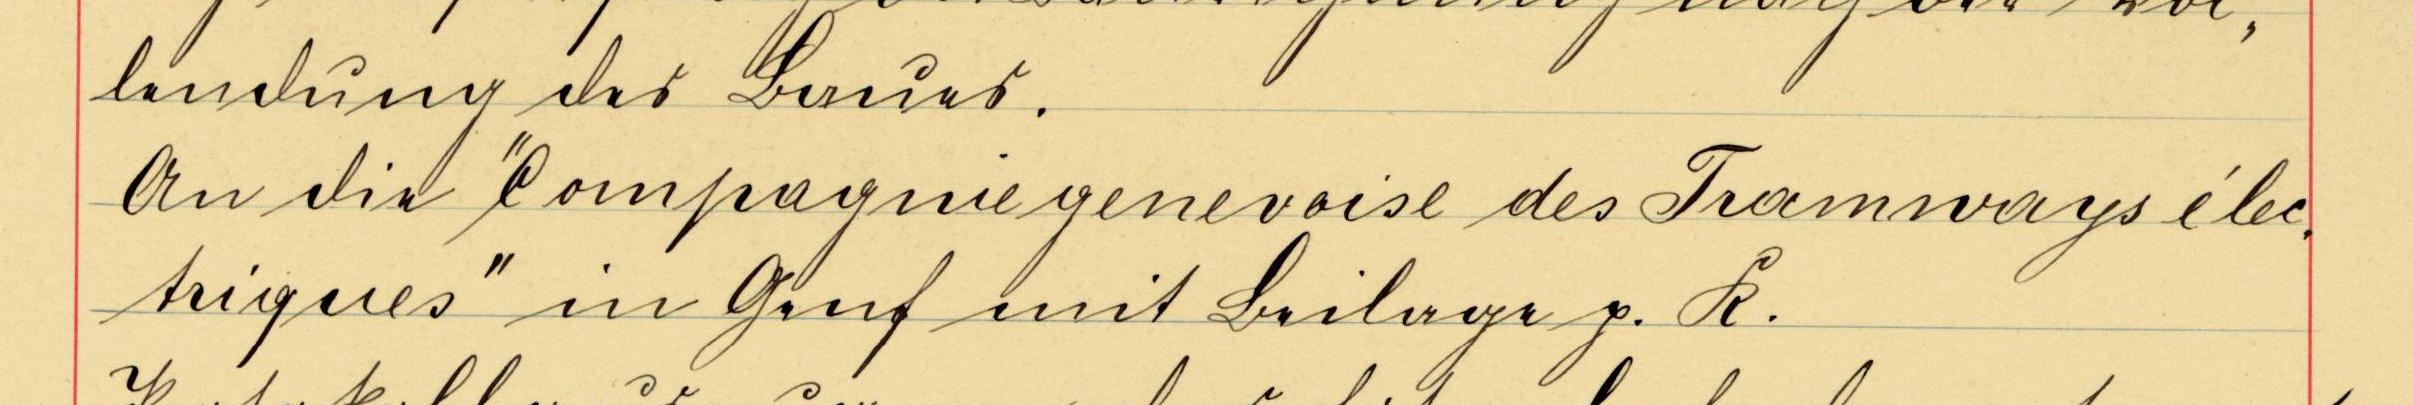 lendung des Baues.
An die "Compagnie genevoise des Tramways élec-
triques" in Genf mit Beilage p. K.